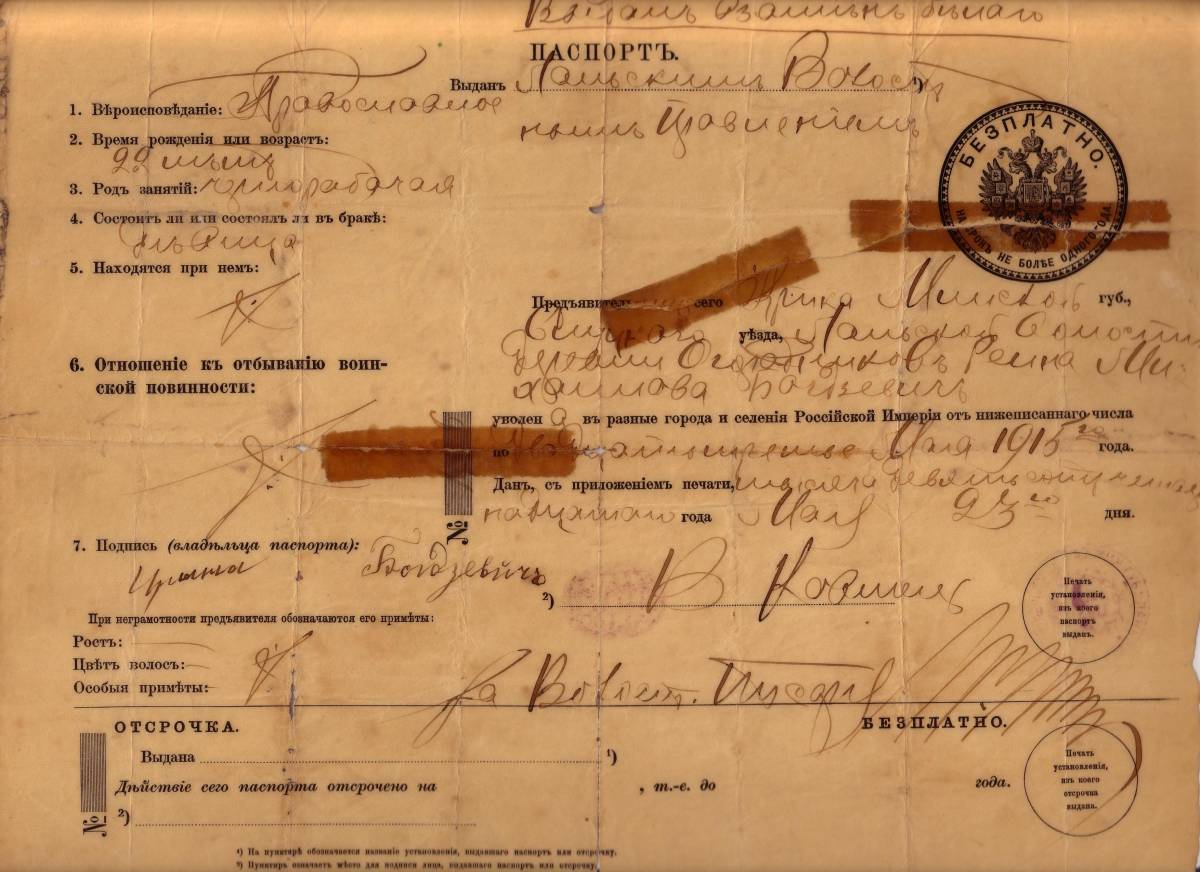 ПАСПОРТЪ.
Выданъ Ляльскимъ Волост
нымъ Правленіемъ
БЕЗПЛАТНО.
НА СРОКЪ НЕ БОЛѢЕ ОДНОГО ГОДА
1. Вѣроисповѣданіе: Православное
2. Время рожденія или возрастъ:
22 лѣтъ
3. Родъ занятій: чернорабочая
4. Состоитъ ли или состоялъ ли въ бракѣ:
дѣвица
5. Находятся при немъ:
6. Отношеніе къ отбыванію воин-
ской повинности:
Предъявитель сего Минской губ.,
уѣзда, волости
Ми-
хайлова Богдзевичъ
уволен а въ разные города и селенія Россійской Имперіи отъ нижеписаннаго числа
по Мая 1915го года.
Данъ, съ приложеніемъ печати, тысяча девятьсотъ
года Мая 23го дня.
7. Подпись (владѣльца паспорта):
Богдзевичъ
²)
При неграмотности предъявителя обозначаются его примѣты:
Ростъ:
Цвѣтъ волосъ:
Особыя примѣты:
За Волост. Писаря
Печать
установленія,
изъ коего
паспортъ
выданъ.
ОТСРОЧКА.
БЕЗПЛАТНО.
Выдана ¹)
Дѣйствіе сего паспорта отсрочено на , т.-е. до года.
№ ²)
№
Печать
установленія,
изъ коего
отсрочка
выдана.
¹) На пунктирѣ обозначается названіе установленія, выдавшаго паспортъ или отсрочку.
²) Пунктиръ означаетъ мѣсто для подписи лица, выдавшаго паспортъ или отсрочку.